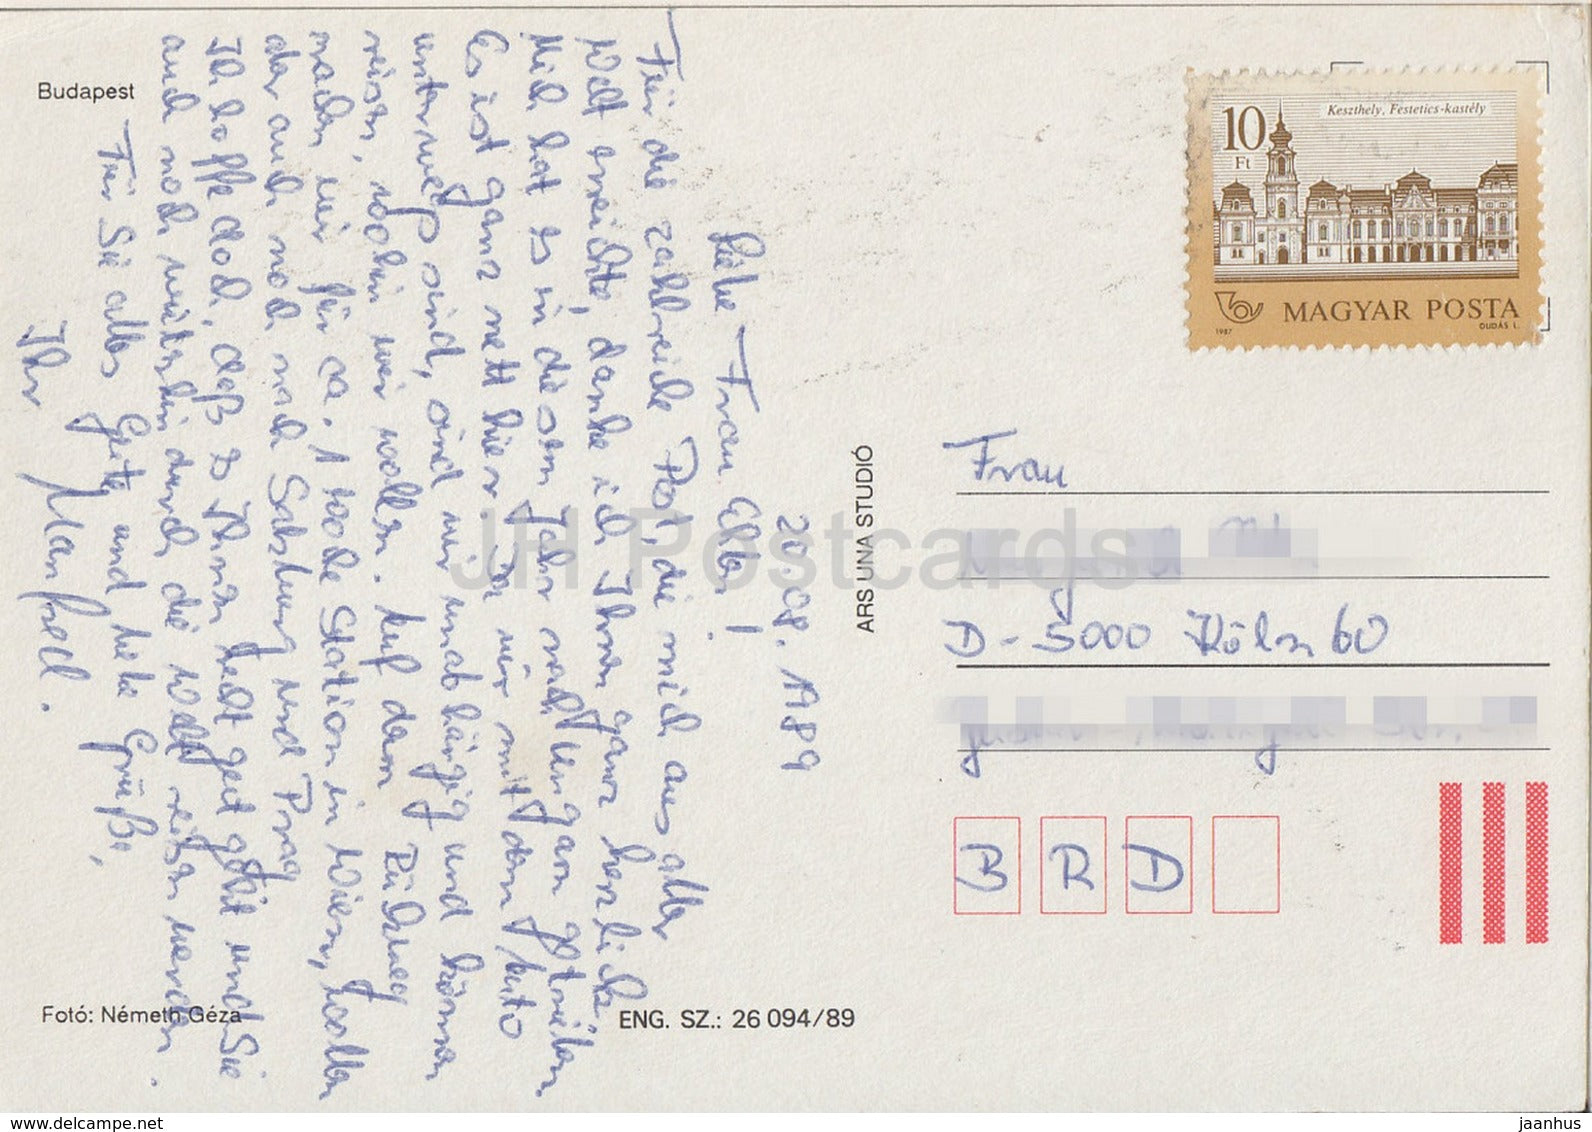 Budapest
20.08.1989
Liebe Frau Elber!
Für die zahlreiche Post, die mich aus aller
Welt erreichte, danke ich Ihnen ganz herzlich.
Mich hat es in diesem Jahr nach Ungarn getrieben.
Es ist ganz nett hier. Da wir mit dem Auto
unterwegs sind, sind wir unabhängig und können
reisen, wohin wir wollen. Auf dem Rückweg
machen wir für ca. 1 Woche Station in Wien, wollen
aber auch noch nach Salzburg und Prag.
Ich hoffe doch, daß es Ihnen recht gut geht und Sie
auch noch weiterhin durch die Welt reisen werden.
Für Sie alles Gute und liebe Grüße,
Ihr Manfred.
Fotó: Németh Géza
ENG. SZ.: 26 094/89
ARS UNA STUDIÓ
JH Postcards
10
Ft
Keszthely, Festetics-kastély
MAGYAR POSTA
1987
DUDÁS L.
Frau
D-5000 Köln 60
BRD
delcampe.net
jaanhus